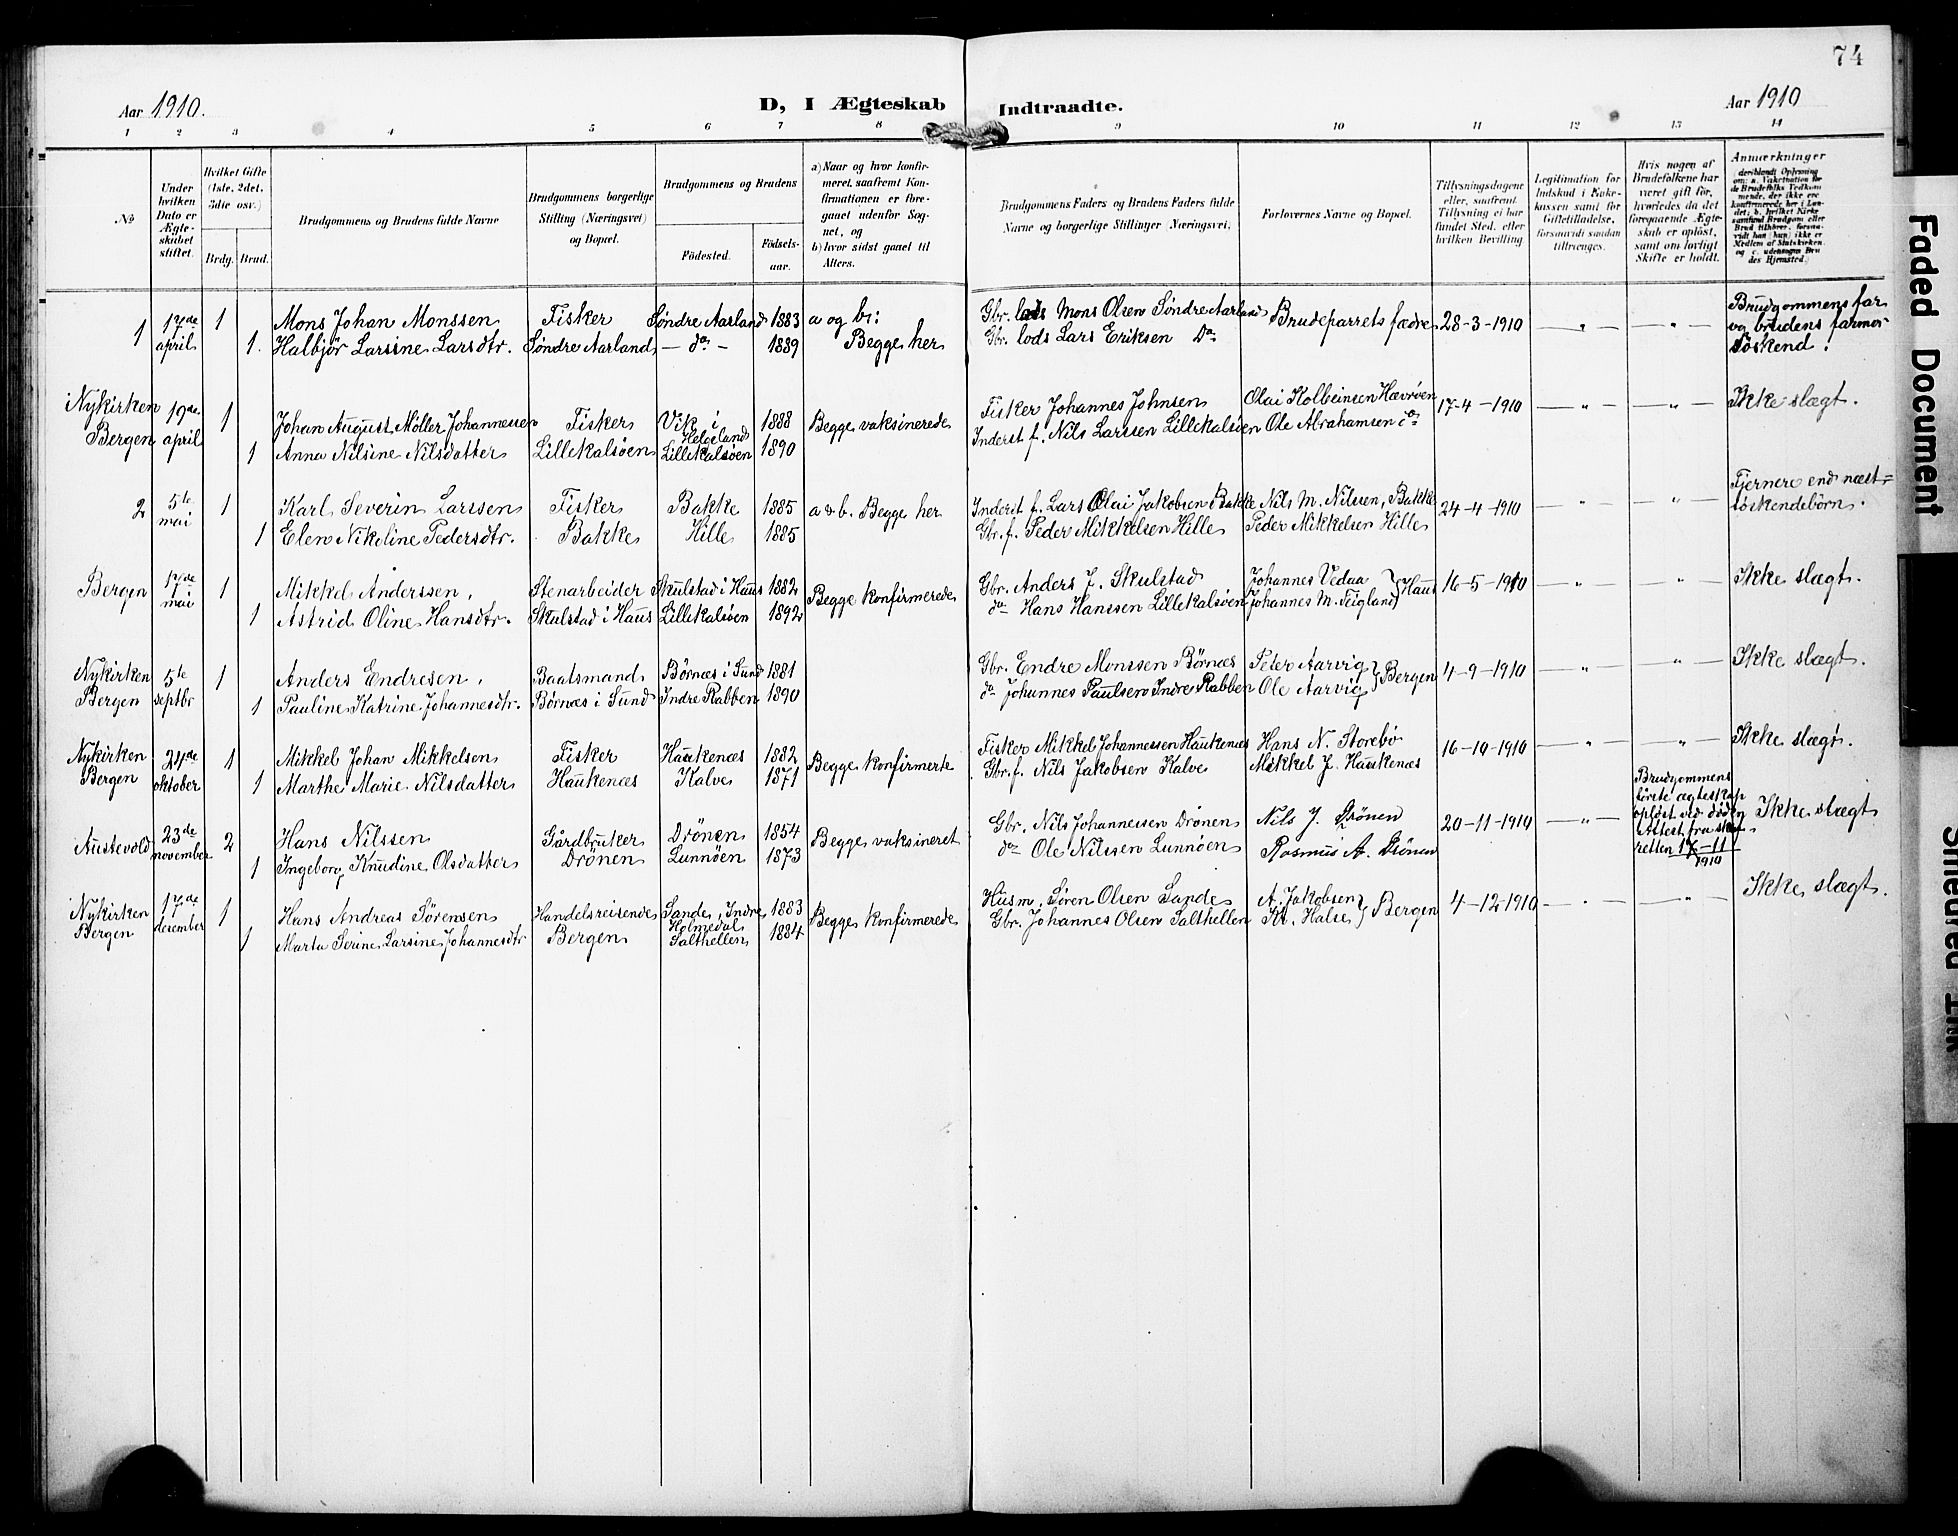 74
Aar 1910.
D, I Ægteskab Indtraadte.
Aar 1910
1 2 3 4 5 6 7 8 9 10 11 12 13 14
No
Under hvilken Dato er Ægteskabet stiftet.
Hvilket Gifte (1ste, 2det, 3die osv.)
Brdg. Brud.
Brudgommens og Brudens fulde Navne
Brudgommens borgerlige Stilling (Næringsvei) og Bopæl.
Brudgommens og Brudens
Födested.
Födselsaar.
a) Naar og hvor konfirmeret, saafremt Konfirmationen er foregaaet udenfor Sognet, og
b) hvor sidst gaaet til Alters.
Brudgommens Faders og Brudens Faders fulde Navne og borgerlige Stillinger (Næringsvei).
Forlovernes Navne og Bopæl.
Tillysningsdagene eller, saafremt Tillysning ei har fundet Sted, efter hvilken Bevilling.
Legitimation for Indskud i Enkekassen samt for Giftetilladelse, forsaavidt saadan tiltrænges.
Hvis nogen af Brudefolkene har været gift för, hvorledes da det foregaaende Ægteskab er oplöst, samt om lovligt Skifte er holdt.
Anmærkninger
deriblandt Oplysning om: a. Vakcination for de Brudefolks Vedkommende, der ikke ere konfirmerede her i Landet; b. hvilket Kirkesamfund Brudgom eller Brud tilhörer, forsaavidt han (hun) ikke er Medlem af Statskirken, og c. udensogns Brudes Hjemsted.)
1 17de april 1 Mons Johan Monssen Fisker Söndre Aarland 1883 a og b: Gbr. lods Mons Olsen Söndre Aarland Brudeparrets fædre 28-3-1910 — " — — " — Brudgommens far
1. Halbjör Larsine Larsdtr. Söndre Aarland — do — 1889 Begge her Gbr. lods Lars Eriksen Do og brudens farmor
söskend.
Nykirken Bergen 19de april 1 Johan August Möller Johannessen Fisker Vik i Helgeland 1888 Begge vaksinerede Fisker Johannes Johnsen Olai Kolbeinsen Hævröen 17-4-1910 — " — — " — Ikke slægt.
1 Anna Nilsine Nilsdatter Lillekalsöen Lillekalsöen 1890 Inderst f. Nils Larssen Lillekalsöen Ole Abrahamsen do
2 5te mai 1 Karl Severin Larssen Fisker Bakke 1885 a & b. Begge her Inderst f. Lars Olai Jakobsen Bakke Nils M. Nilssen, Bakke 24-4-1910 — " — — " — Fjernere end næst-
1 Elen Nikoline Pedersdtr. Bakke Hille 1885 Gbr. f. Peder Mikkelsen Hille Peder Mikkelsen Hille söskendebörn.
Bergen 17de mai 1 Mikkel Anderssen, Stenarbeider Skulstad i Haus 1882 Begge konfirmerede Gbr. Anders J. Skulstad Johannes Vedaa } Haus 16-5-1910 — " — — " — Ikke slægt.
1 Astrid Oline Hansdtr. Skulstad i Haus Lillekalsöen 1892 do Hans Hanssen Lillekalsöen Johannes M. Teigland
Nykirken Bergen 5te septbr 1 Anders Endresen, Baatsmand Börnæs i Sund 1881 Gbr. Endre Monssen Börnæs Peter Aarvig } Bergen 4-9-1910 — " — — " — Ikke slægt.
1 Pauline Katrine Johannesdtr. Börnæs i Sund Indre Rabben 1890 do Johannes Paulsen Indre Rabben Ole Aarvig
Nykirken Bergen 24de oktober 1 Mikkel Johan Mikkelsen Fisker Haukenæs 1882 Begge konfirmerte Fisker Mikkel Johannessen Haukenæs Hans N. Storebö 16-10-1910 — " — — " — Ikke slægt.
1 Marthe Marie Nilsdatter Haukenæs Kalve 1871 Gbr. f. Nils Jakobsen Kalve Mikkel J. Haukenæs
Austevold 23de november 2 Hans Nilssen Gårdbruker Drönen 1854 Begge vaksineret Gbr. Nils Johannessen Drönen Nils J. Drönen 20-11-1910 — " — Brudgommens förste ægteskap oplöst ved döden Attest fra skifteretten 17-11 1910 Ikke slægt
1 Ingeborg Knudine Olsdatter Drönen Lunnöen 1873 do Ole Nilssen Lunnöen Rasmus A. Drönen
Nykirken Bergen 17de desember 1 Hans Andreas Sörensen Handelsreisende Sande, Indre Holmedal 1883 Begge konfirmerede Husm. Sören Olsen Sande A. Jakobsen } Bergen 4-12-1910 — " — — " — Ikke slægt.
1 Marta Serine Larsine Johannesdtr Bergen Salthellen 1884 Gbr. Johannes Olsen Salthellen Kr. Halse
Faded Document
Smeared Ink